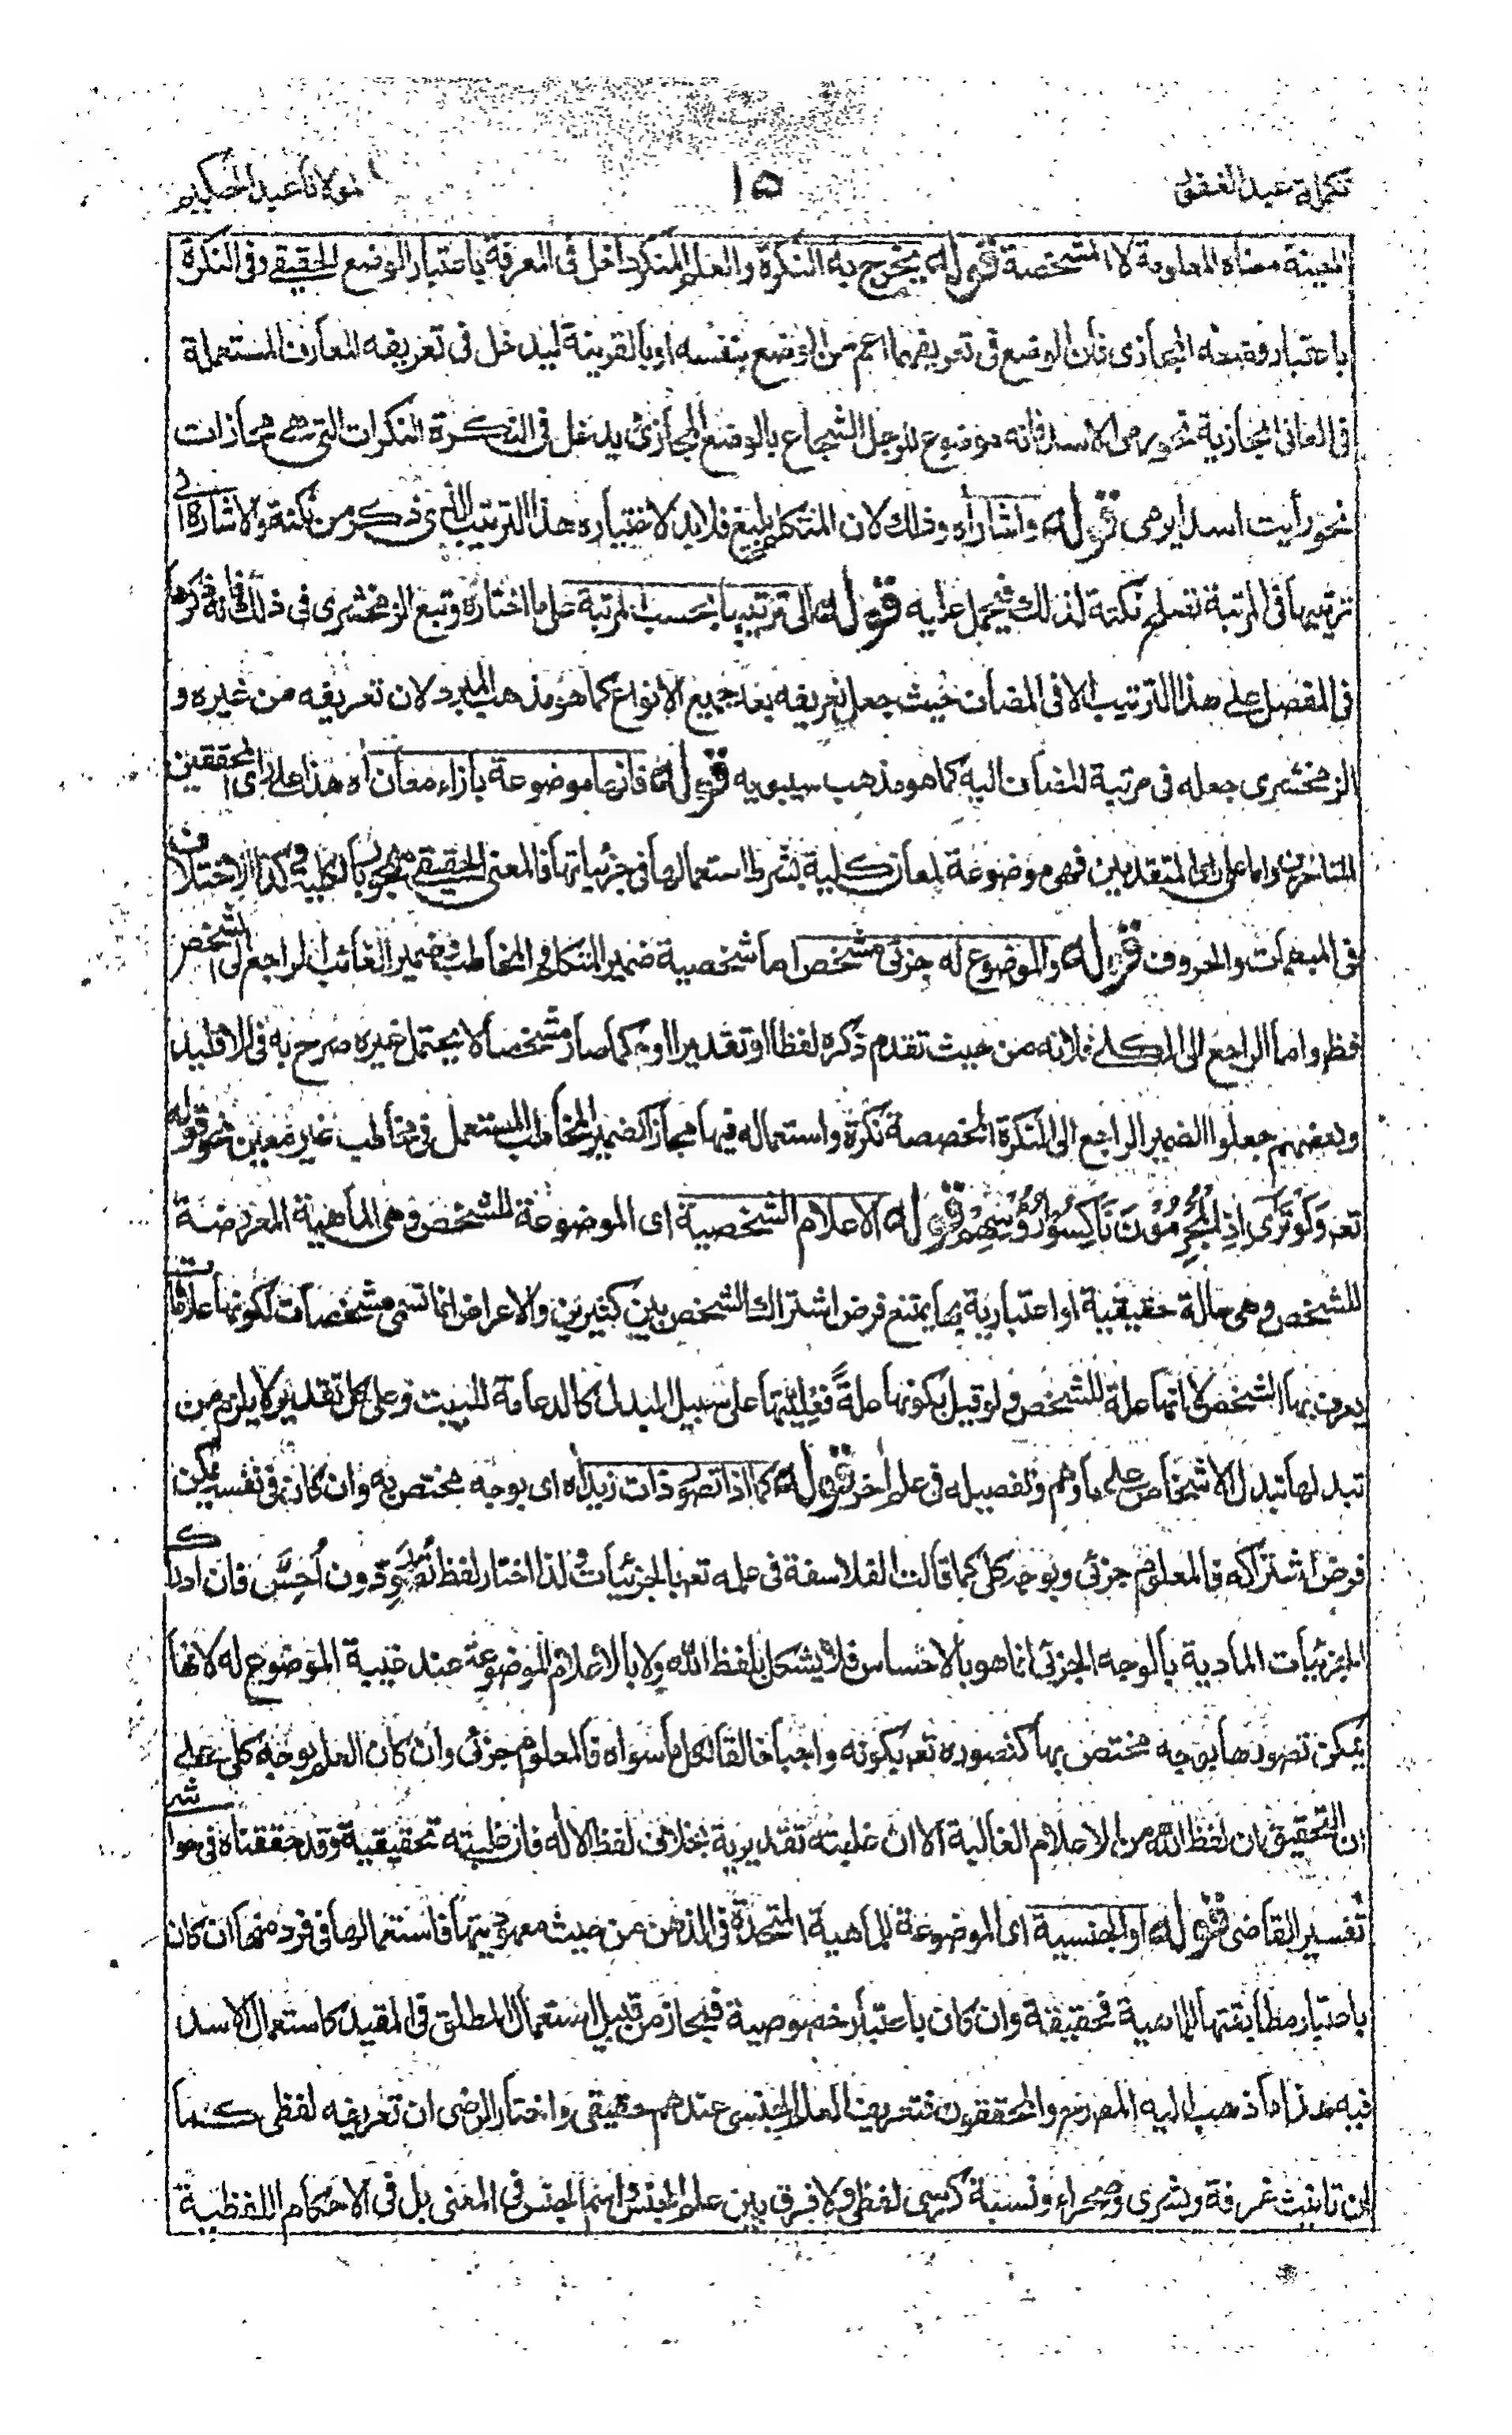 تكملة عبد الغفور
١٥
مولانا عبد الحكيم
المعينة معناه المعلومة لا المشخصة قوله يخرج به النكرة والعلم المنكر داخل في المعرفة باعتبار الوضع الحقيقي وفي النكرة
باعتبار وضعه المجازى فان الوضع في تعريفهما اعم من الوضع بنفسه او بالقرينة ليدخل في تعريفه المعارف المستعملة
في المعانى المجازية نحو يرمى الاسد فانه موضوع للرجل الشجاع بالوضع المجازى يدخل في النكرة النكرات التى هى مجازات
نحو رأيت اسدا يرمى قوله واشاراه وذلك لان المتكلم بليغ فلابد لاختياره هذا الترتيب الذى ذكر من نكتة والاشارة الى
ترتيبها في المرتبة تصلح نكتة لذلك فيحمل عليه قوله الى ترتيبها بحسب المرتبة على ما اختاره وتبع الزمخشرى في ذلك فانه ذكرها
في المفصل على هذا الترتيب الا في المضاف حيث جعل تعريفه بعد جميع الانواع كما هو مذهب المبرد لان تعريفه من غيره و
الزمخشرى جعله في مرتبة المضاف اليه كما هو مذهب سيبويه قوله فانها موضوعة بازاء معان اه هذا على رأى المحققين
المتاخرين واما على رأى المتقدمين فهى موضوعة لمعان كلية بشرط استعمالها في جزئياتها فالمعنى الحقيقي مهجور بالكلية وكذا الاختلاف
في المبهمات والحروف قوله والموضوع له جزئى مشخص اما شخصية ضمير المتكلم والمخاطب وضمير الغائب الراجع الى الشخص
فظ واما الراجع الى الكلى فلانه من حيث تقدم ذكره لفظا او تقديرا او حكما صار مشخصا لا يحتمل غيره صرح به في الاقليد
وبعضهم جعلوا الضمير الراجع الى النكرة المخصصة نكرة واستعماله فيها مجاز كضمير المخاطب المستعمل في مخاطب غير معين نحو قوله
تعه وَلَوْ تَرَى اِذِ الْمُجْرِمُوْنَ نَاكِسُوْا رُؤُسِهِمْ قوله الاعلام الشخصية اى الموضوعة للشخص وهى الماهية المعروضة
للتشخص وهى حالة حقيقية او اعتبارية بها يمتنع فرض اشتراك الشخص بين كثيرين والاعراض انما تسمى مشخصات لكونها علامات
يعرف بها الشخص لا انها علة للتشخص ولو قيل بكونها علةً فعِلّيتها على سبيل البدل كالدعامة للبيت وعلى كل تقدير لا يلزم من
تبدلها تبدل الاشخاص على ما وهم وتفصيله في علم آخر قوله كما اذا تصور ذات زيد اه اى بوجه مختص به وان كان في نفسه يمكن
فرض اشتراكه فالمعلوم جزئى وبوجه كلى كما قالت الفلاسفة في علمه تعه بالجزئيات ولذا اختار لفظ تُصُوِّر دون اُحِسَّ فان ادراك
الجزئيات المادية بالوجه الجزئى انما هو بالاحساس فلا يشكل بلفظ الله ولا بالاعلام الموضوعة عند غيبة الموضوع له لانها
يمكن تصورها بوجه مختص بها كتصوره تعه بكونه واجبا خالقا لكل ما سواه فالمعلوم جزئى وان كان العلم بوجه كلى على
ان التحقيق ان لفظ الله من الاعلام الغالبة الا ان غلبته تقديرية بخلاف لفظ الاله فان غلبته تحقيقية وقد حققناه في حواشى
تفسير القاضى قوله او الجنسية اى الموضوعة للماهية المتحدة في الذهن من حيث معهوديتها فاستعمالها في فرد منها ان كان
باعتبار مطابقتها للماهية فحقيقة وان كان باعتبار خصوصية فمجاز من قبيل استعمال المطلق في المقيد كاستعمال الاسد
فيه هذا ما ذهب اليه المصنف والمحققون فتعريف العلم الجنسى عندهم حقيقى واختار الرضى ان تعريفه لفظى كما
ان تانيث غرفة وبشرى وصحراء ونسبة كرسى لفظى ولا فرق بين علم الجنس واسم الجنس في المعنى بل في الاحكام اللفظية